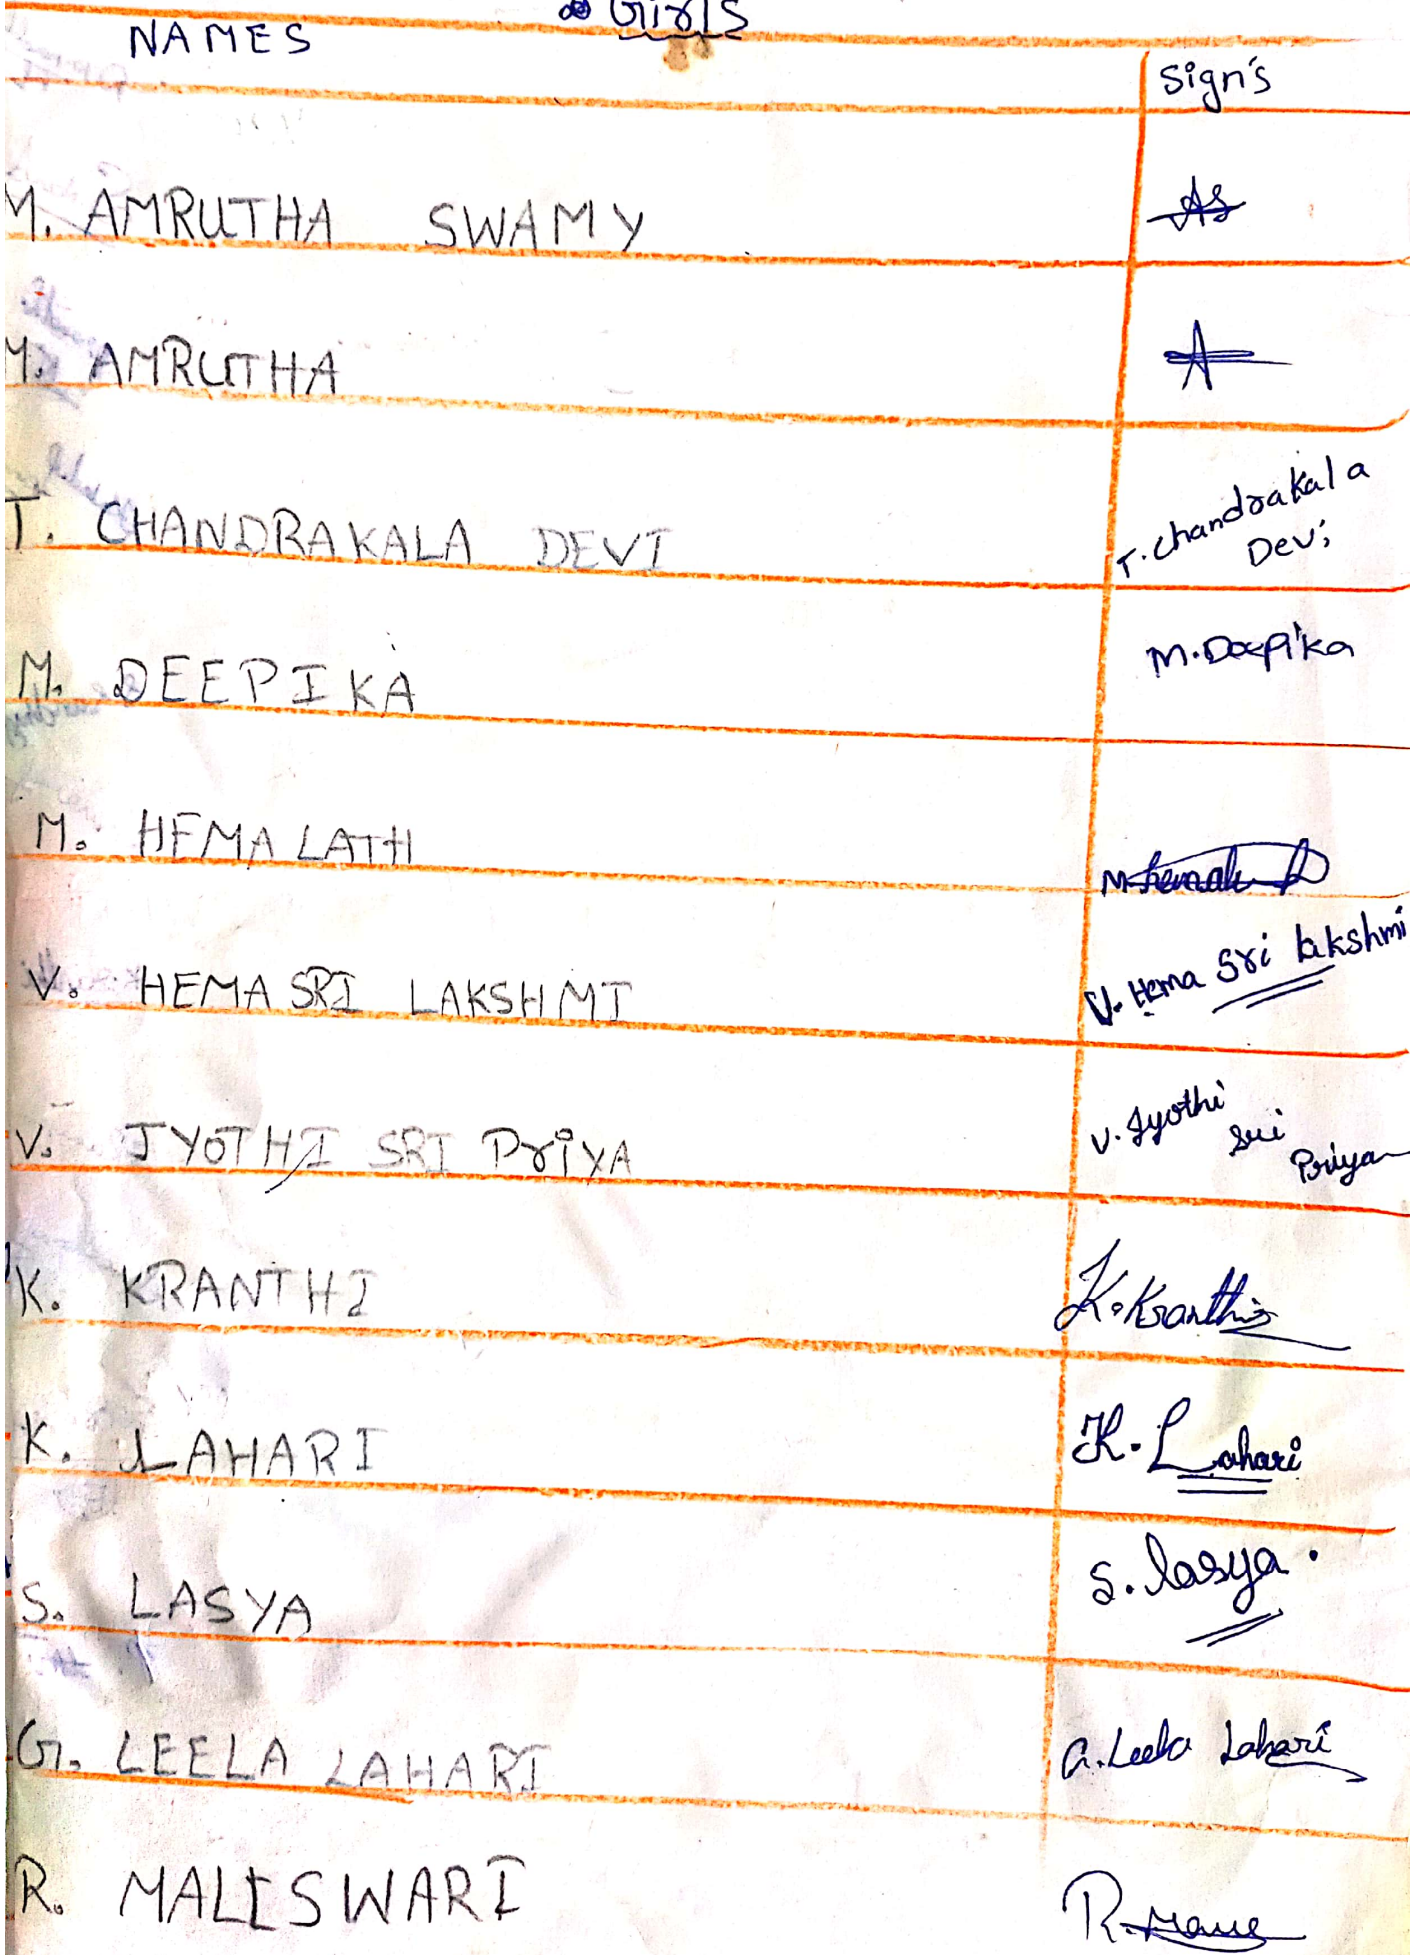 Girls
NAMES
Sign's
M. AMRUTHA SWAMY
As
M. AMRUTHA
A
T. CHANDRAKALA DEVI
T. Chandrakala
Devi
M. DEEPIKA
M. Deepika
M. HEMA LATH
V. HEMA SRI LAKSHMI
V. Hema Sri lakshmi
V. JYOTHI SRI PriYA
V. Jyothi
Sri
Priya
K. KRANTHI
K. Kranthi
K. LAHARI
K. Lahari
S. LASYA
S. lasya.
G. LEELA LAHARI
G. Leela Lahari
R. MALISWARI